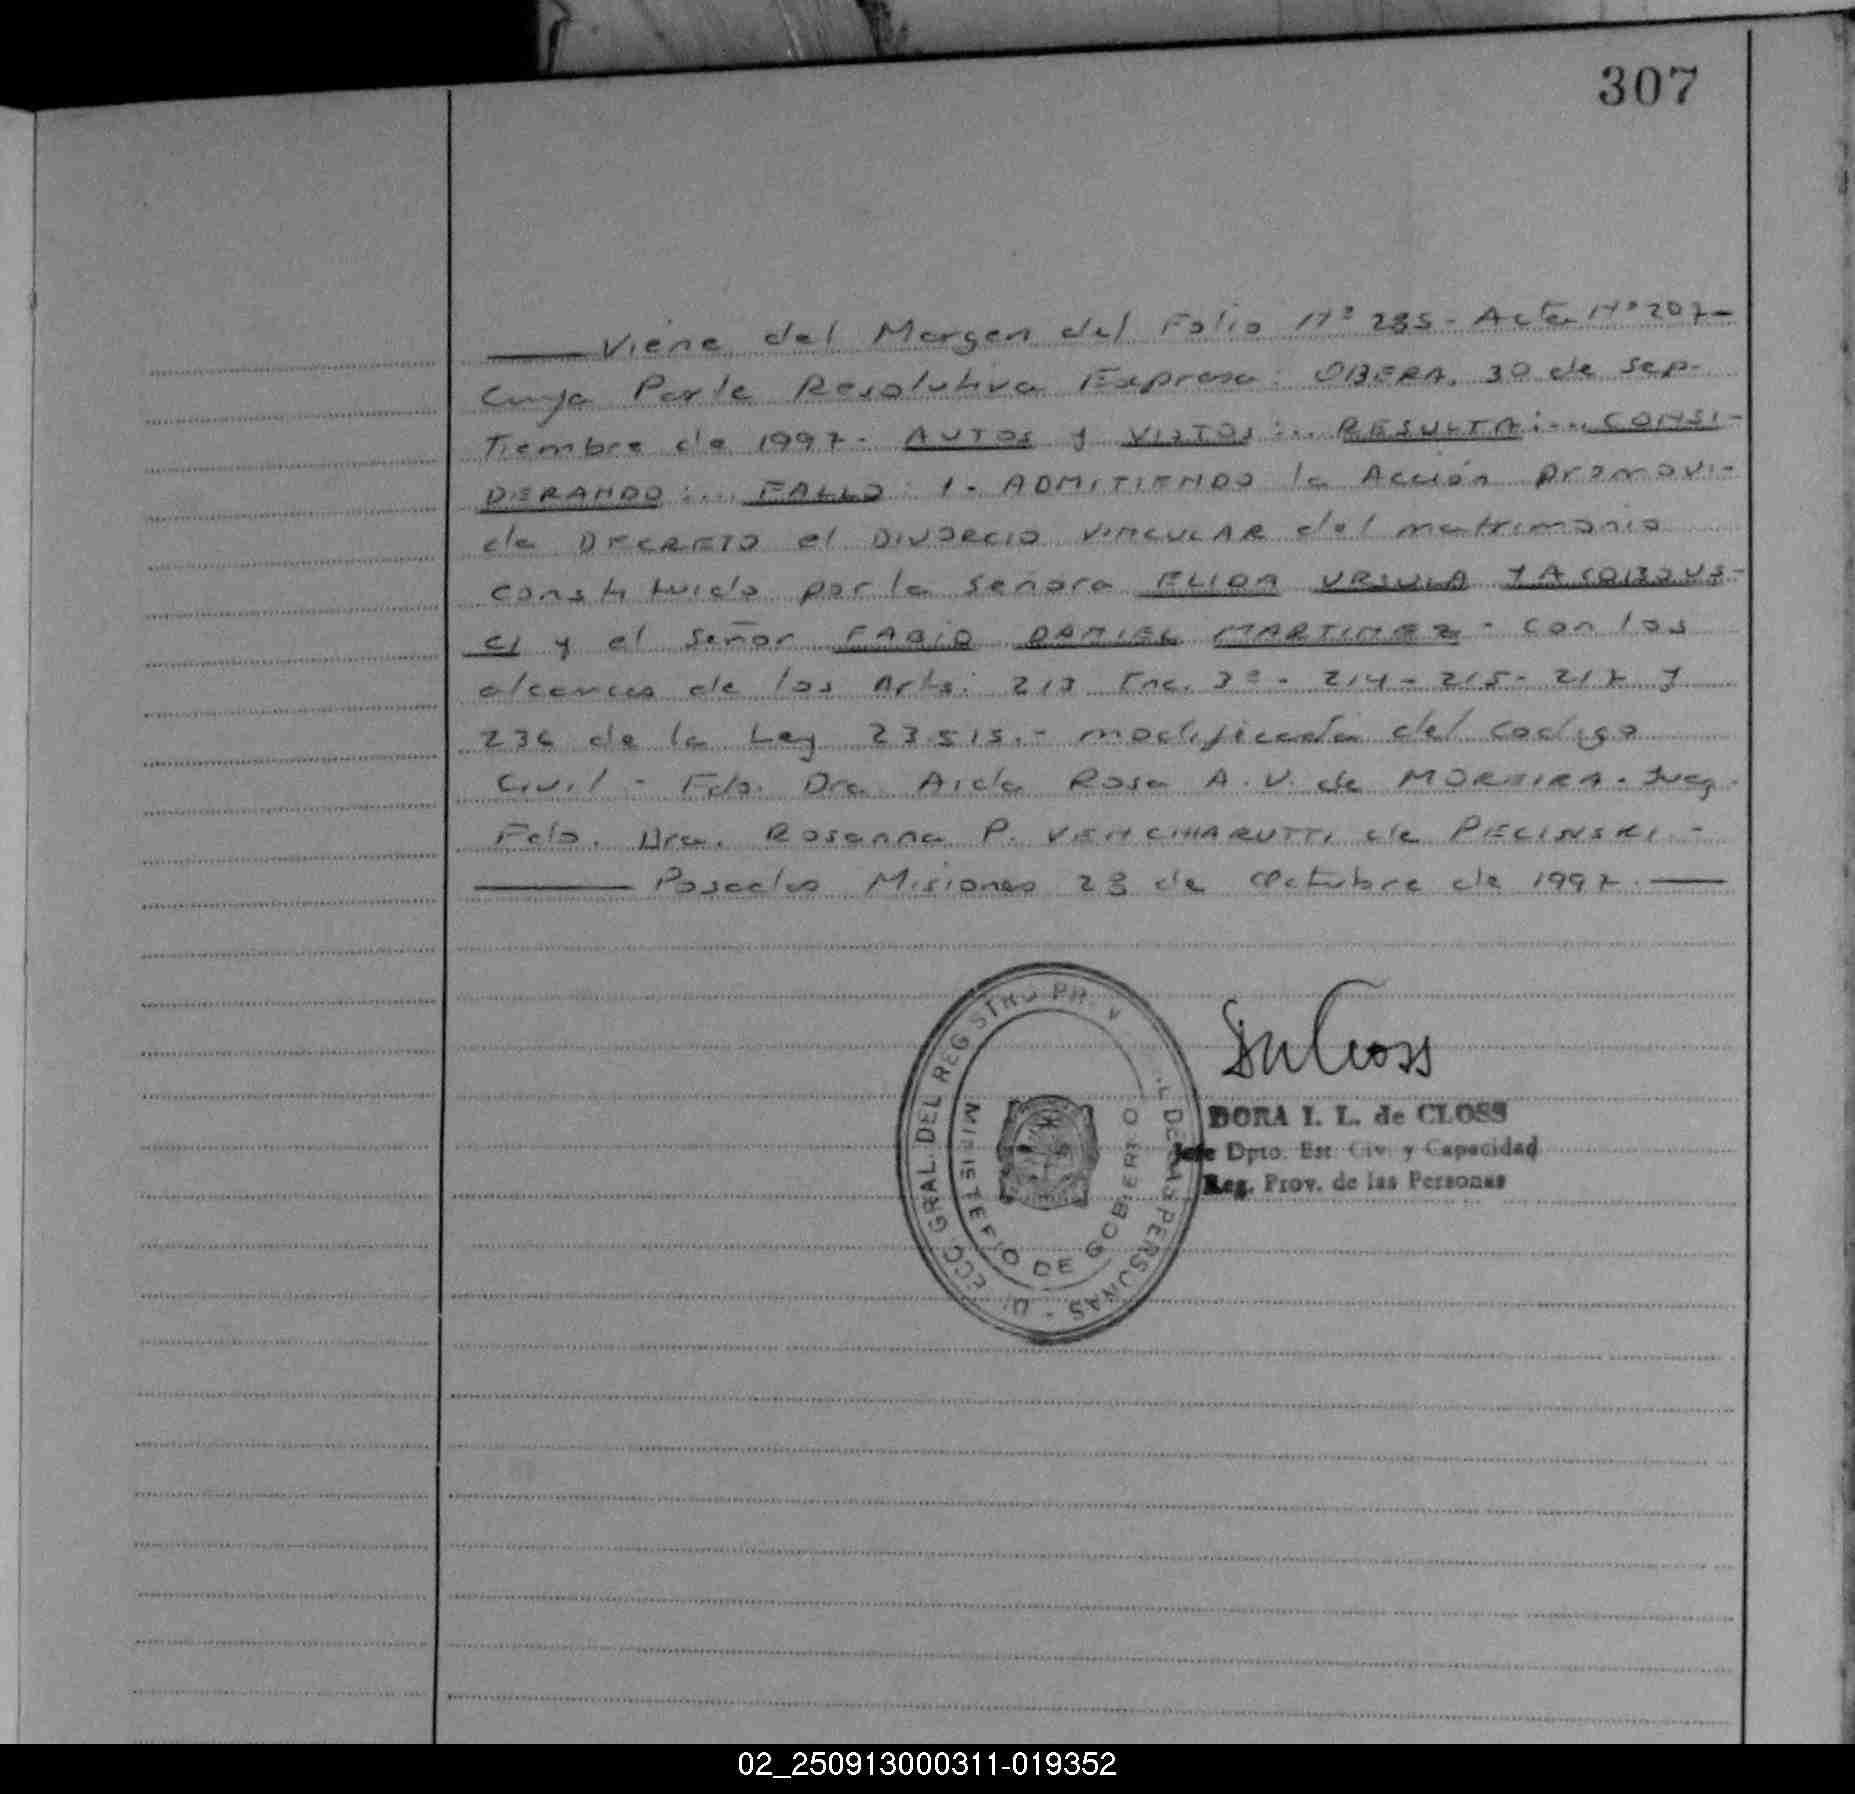 307
Viene del Margen del Folio Nº 285 - Acta Nº 207 -
Cuya Parte Resolutiva Expresa: OBERA, 30 de Sep-
tiembre de 1997 - AUTOS y VISTOS:.. RESULTA:... CONSI-
DERANDO:... FALLO: 1. ADMITIENDO la Acción promovi-
da DECRETO el DIVORCIO VINCULAR del matrimonio
constituido por la señora ELIDA URSULA YACOBOVS-
CI y el señor FABIO DANIEL MARTINEZ - con los
alcances de los Arts: 213 Inc. 3º - 214 - 215 - 217 y
236 de la Ley 23515.- modificada del codigo
Civil - Fdo. Dra. Aida Rosa A. V. de MOREIRA - Juez.
Fdo. Dra. Rosanna P. VENCHIARUTTI de PECINSKI. -
Posadas Misiones 28 de Octubre de 1997.
DORA I. L. de CLOSS
Jefe Dpto. Est. Civ. y Capacidad
Reg. Prov. de las Personas
DIRECC GRAL. DEL REGISTRO PROV. DE LAS PERSONAS -
MINISTERIO DE GOBIERNO
02_250913000311-019352